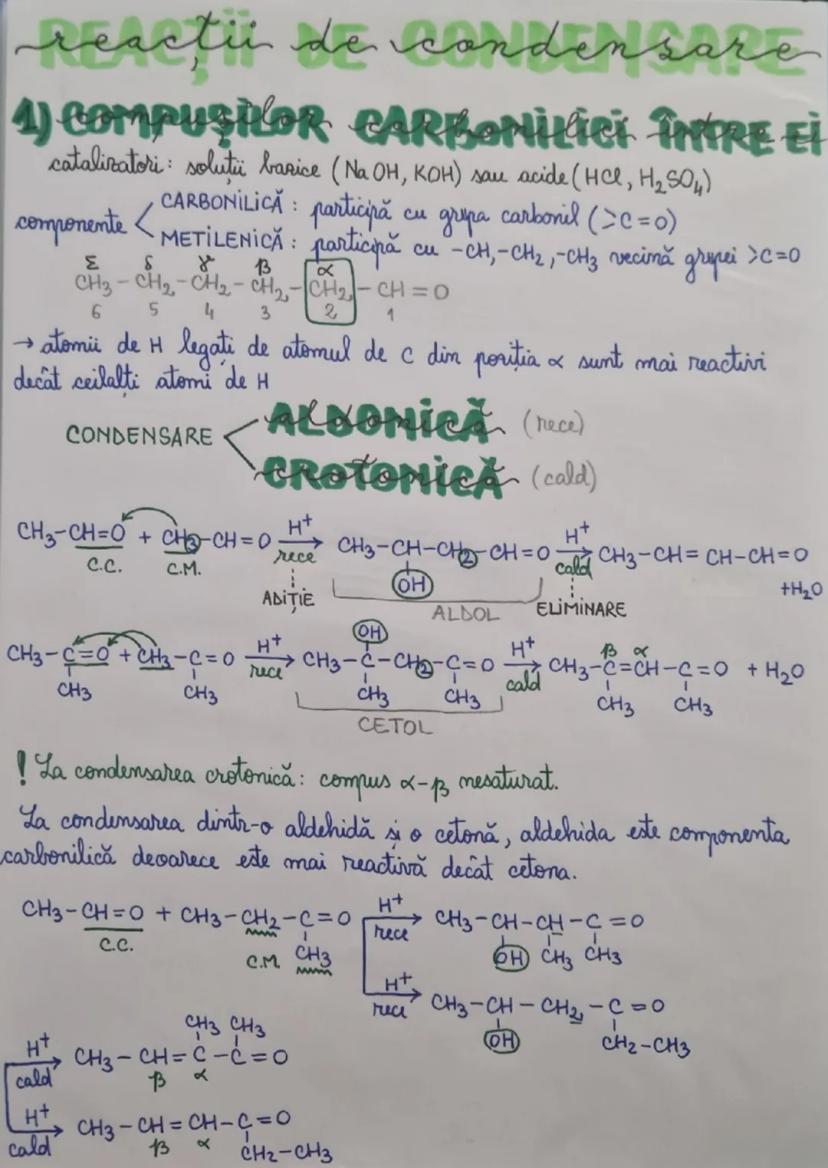 reacții de condensare
1) COMPUȘILOR CARBONILICI ÎNTRE EI
catalizatori: soluții bazice (NaOH, KOH) sau acide (HCl, H₂SO₄)
componente < CARBONILICĂ: participă cu grupa carbonil (>C=O)
METILENICĂ: participă cu -CH, -CH₂, -CH₃ vecină grupei >C=O
ε δ γ β α
CH₃ - CH₂ - CH₂ - CH₂ - CH₂ - CH = O
6 5 4 3 2 1
→ atomii de H legați de atomul de C din poziția α sunt mai reactivi
decât ceilalți atomi de H
CONDENSARE < ALDONICĂ (rece)
CROTONICĂ (cald)
CH₃-CH=O + CH₃-CH=O H⁺ rece → CH₃-CH-CH₂-CH=O H⁺ cald → CH₃-CH=CH-CH=O
C.C. C.M. OH +H₂O
ADIȚIE ALDOL ELIMINARE
OH β α
CH₃-C=O + CH₃-C=O H⁺ rece → CH₃-C-CH₂-C=O H⁺ cald → CH₃-C=CH-C=O + H₂O
CH₃ CH₃ CH₃ CH₃ CH₃ CH₃
CETOL
! La condensarea crotonică: compus α-β nesaturat.
La condensarea dintr-o aldehidă și o cetonă, aldehida este componenta
carbonilică deoarece este mai reactivă decât cetona.
CH₃-CH=O + CH₃-CH₂-C=O H⁺ rece → CH₃-CH-CH-C=O
C.C. C.M. CH₃ OH CH₃ CH₃
H⁺ rece → CH₃-CH-CH₂-C=O
OH CH₂-CH₃
CH₃ CH₃
H⁺ cald → CH₃-CH=C-C=O
β α
H⁺ cald → CH₃-CH=CH-C=O
β α CH₂-CH₃